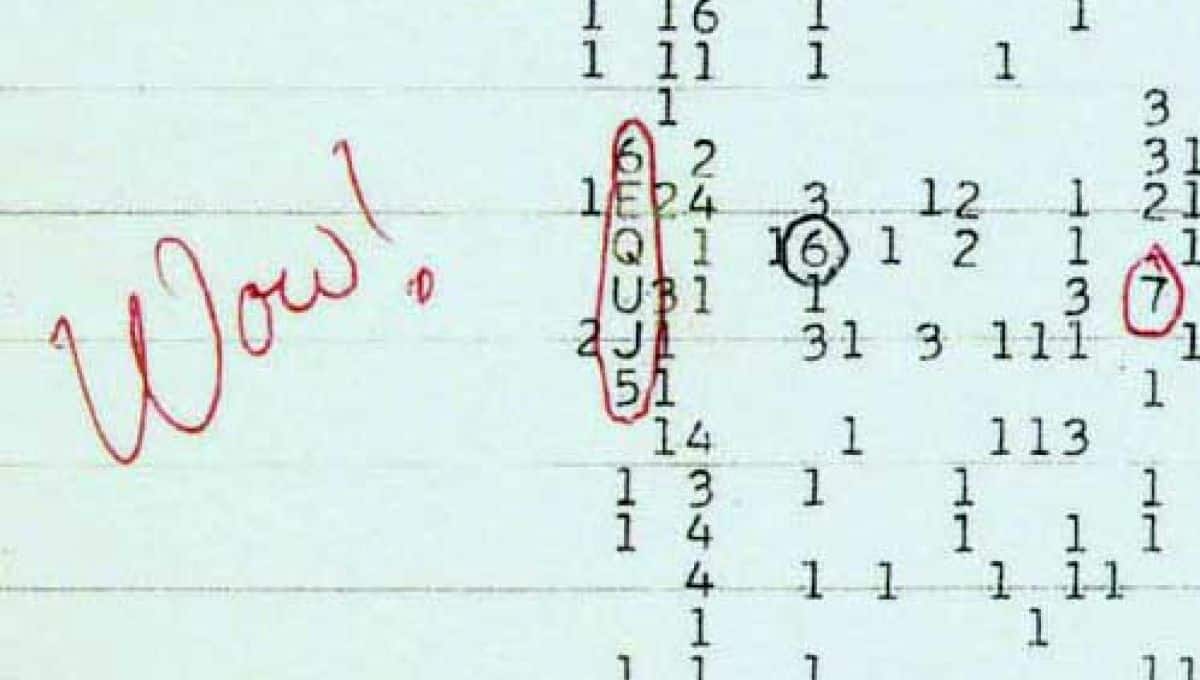 1 16 1 1
1 11 1 1
1 3
6 2 31
1E24 3 12 1 21
Wow!
Q 1 16 1 2 1 1
U31 1 3 7
2J1 31 3 111 1
51 1
14 1 113
1 3 1 1 1
1 4 1 1 1
4 1 1 1 11
1 1
1 1 1 11